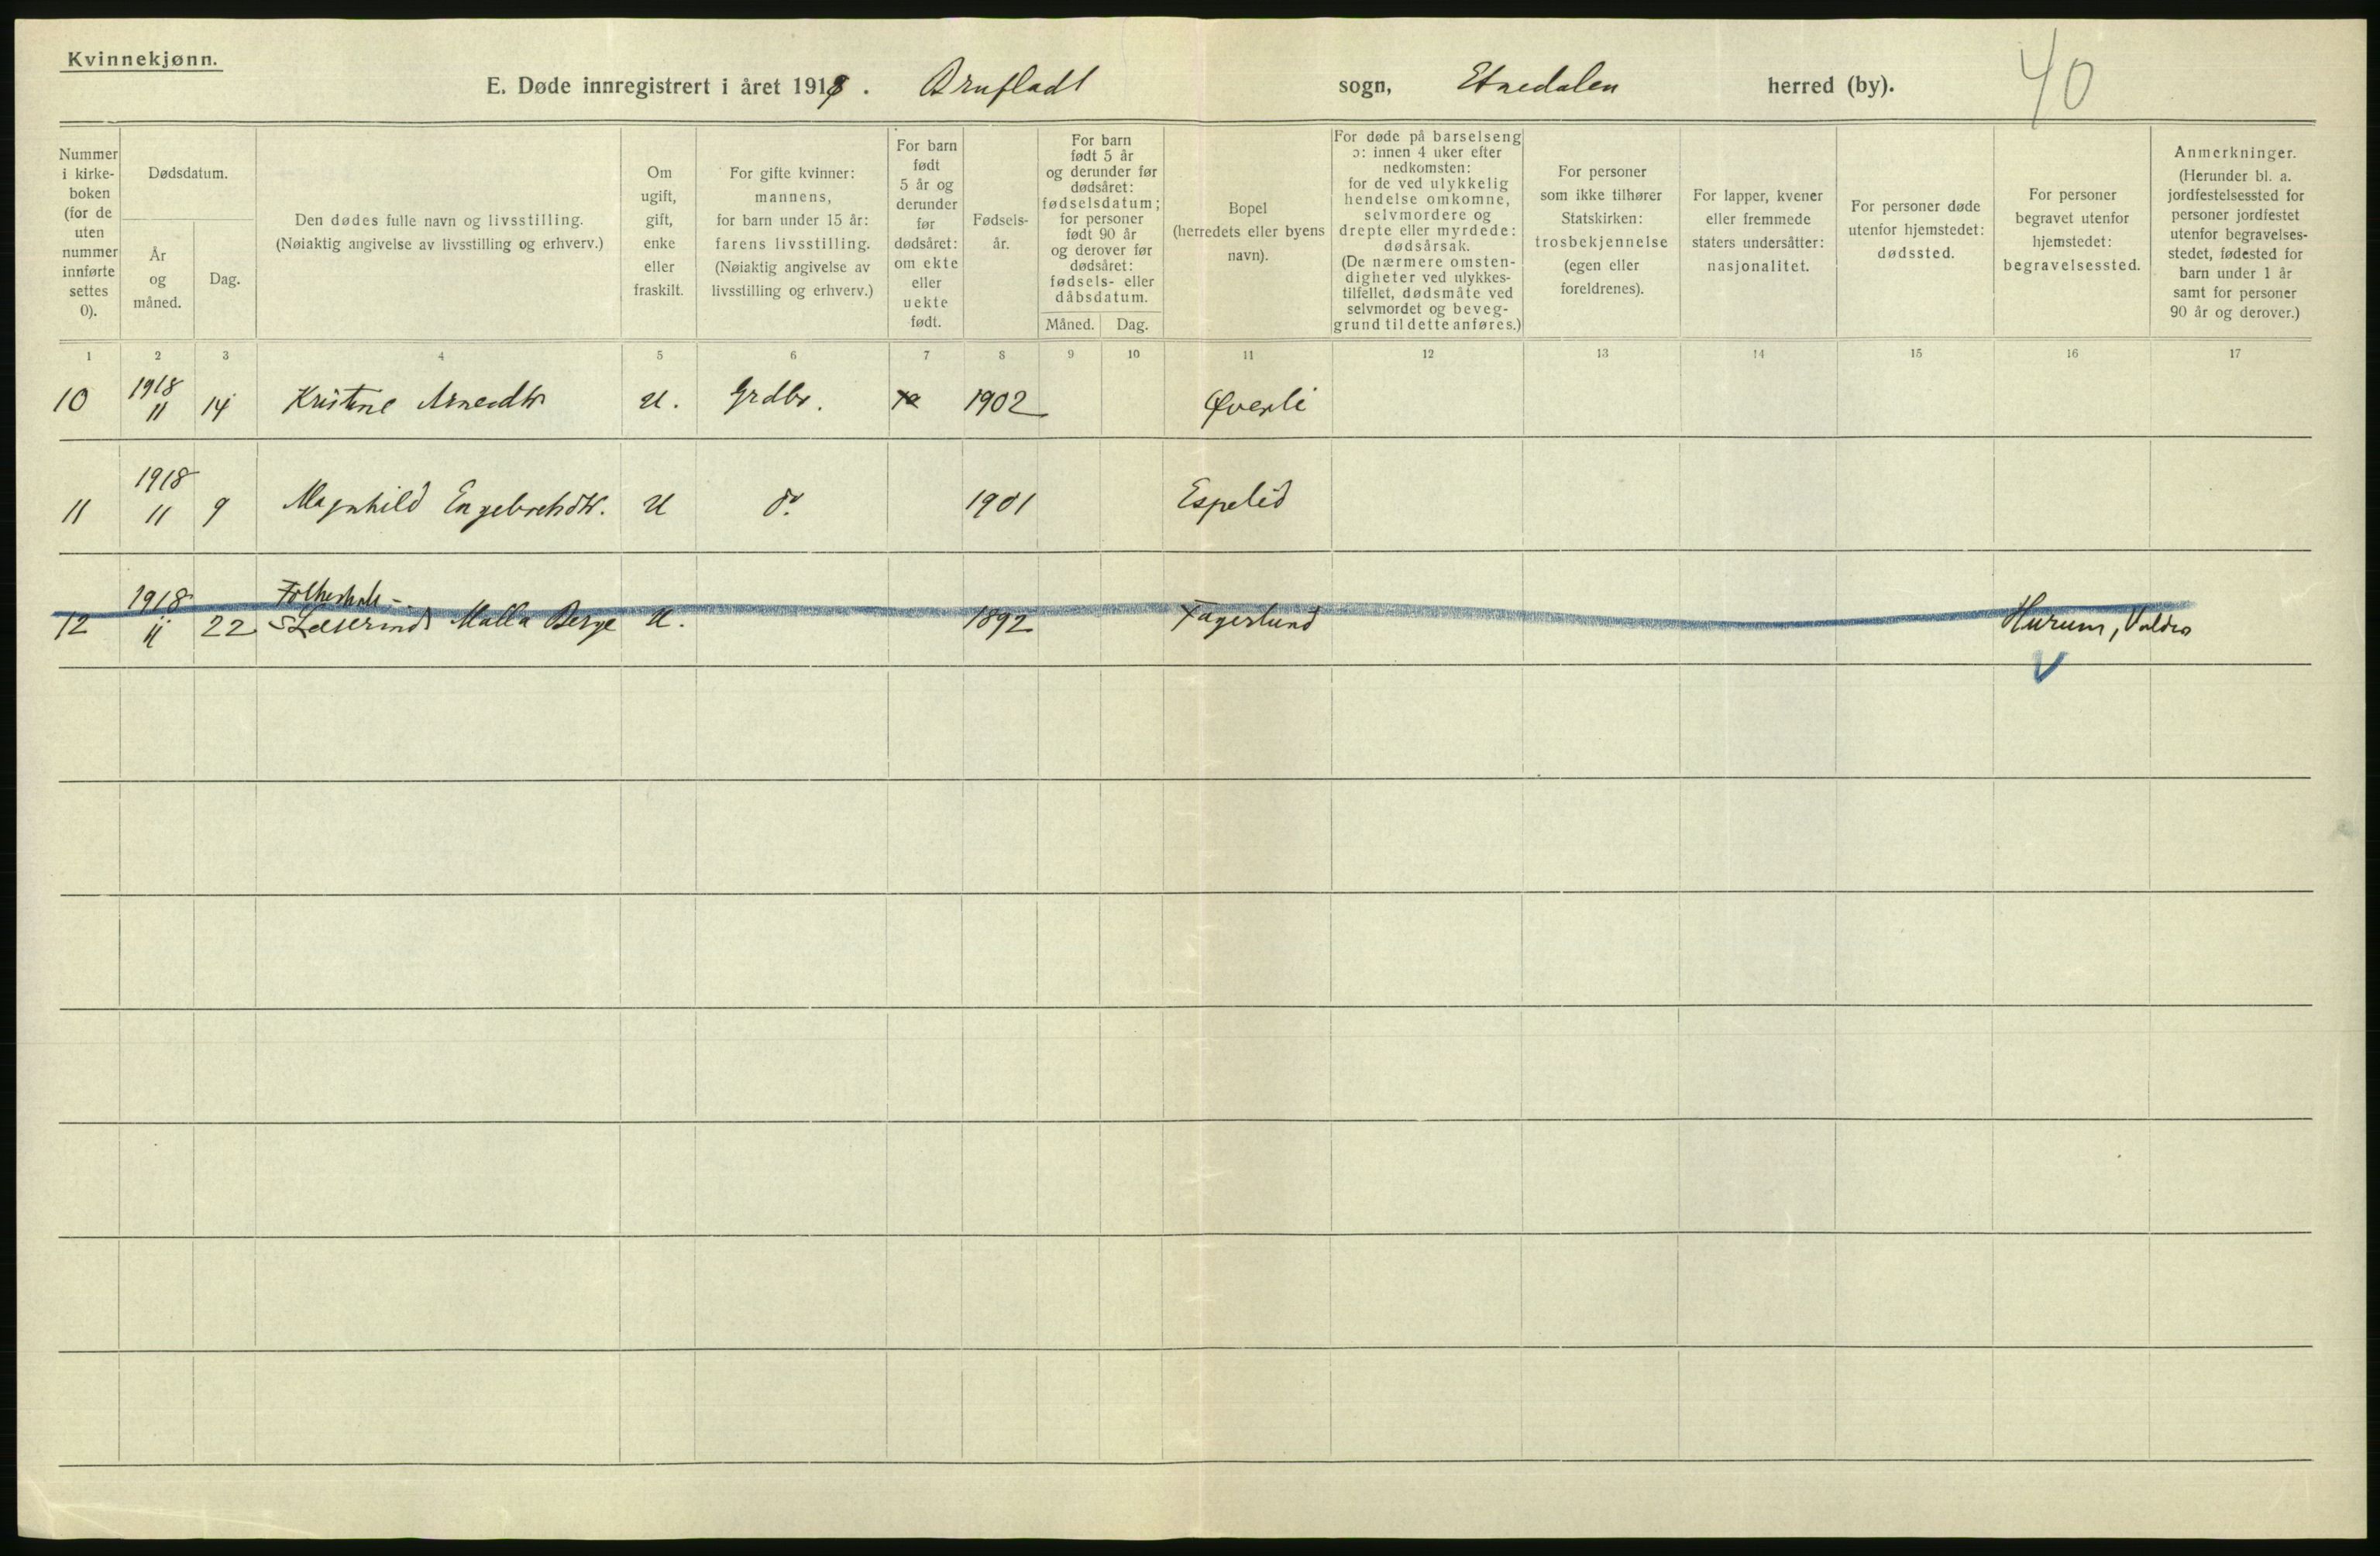 Kvinnekjønn.
E. Døde innregistrert i året 1918. Brufladt sogn, Etnedalen herred (by). 40
Nummer i kirke-boken (for de uten nummer innførte settes 0).
Dødsdatum.
År og måned.
Dag.
Den dødes fulle navn og livsstilling.
(Nøiaktig angivelse av livsstilling og erhverv.)
Om ugift, gift, enke eller fraskilt.
For gifte kvinner: mannens, for barn under 15 år: farens livsstilling. (Nøiaktig angivelse av livsstilling og erhverv.)
For barn født 5 år og derunder før dødsåret: om ekte eller uekte født.
Fødsels-år.
For barn født 5 år og derunder før dødsåret: fødselsdatum; for personer født 90 år og derover før dødsåret: fødsels- eller dåbsdatum.
Måned. Dag.
Bopel (herredets eller byens navn).
For døde på barselseng ɔ: innen 4 uker efter nedkomsten: for de ved ulykkelig hendelse omkomne, selvmordere og drepte eller myrdede: dødsårsak. (De nærmere omsten-digheter ved ulykkes-tilfellet, dødsmåte ved selvmordet og beveg-grund til dette anføres.)
For personer som ikke tilhører Statskirken: trosbekjennelse (egen eller foreldrenes).
For lapper, kvener eller fremmede staters undersåtter: nasjonalitet.
For personer døde utenfor hjemstedet: dødssted.
For personer begravet utenfor hjemstedet: begravelsessted.
Anmerkninger. (Herunder bl. a. jordfestelsessted for personer jordfestet utenfor begravelses-stedet, fødested for barn under 1 år samt for personer 90 år og derover.)
1 2 3 4 5 6 7 8 9 10 11 12 13 14 15 16 17
10 1918 11 14 Kristine Arnesdtr U. Grdbr. 1902 Øverli
11 1918 11 9 Magnhild Engebretsdtr. U do. 1901 Espelid
12 1918 11 22 Folkeskole-
Lærerinde Malla Berge U. 1892 Fagerlund Hurum, Valdres